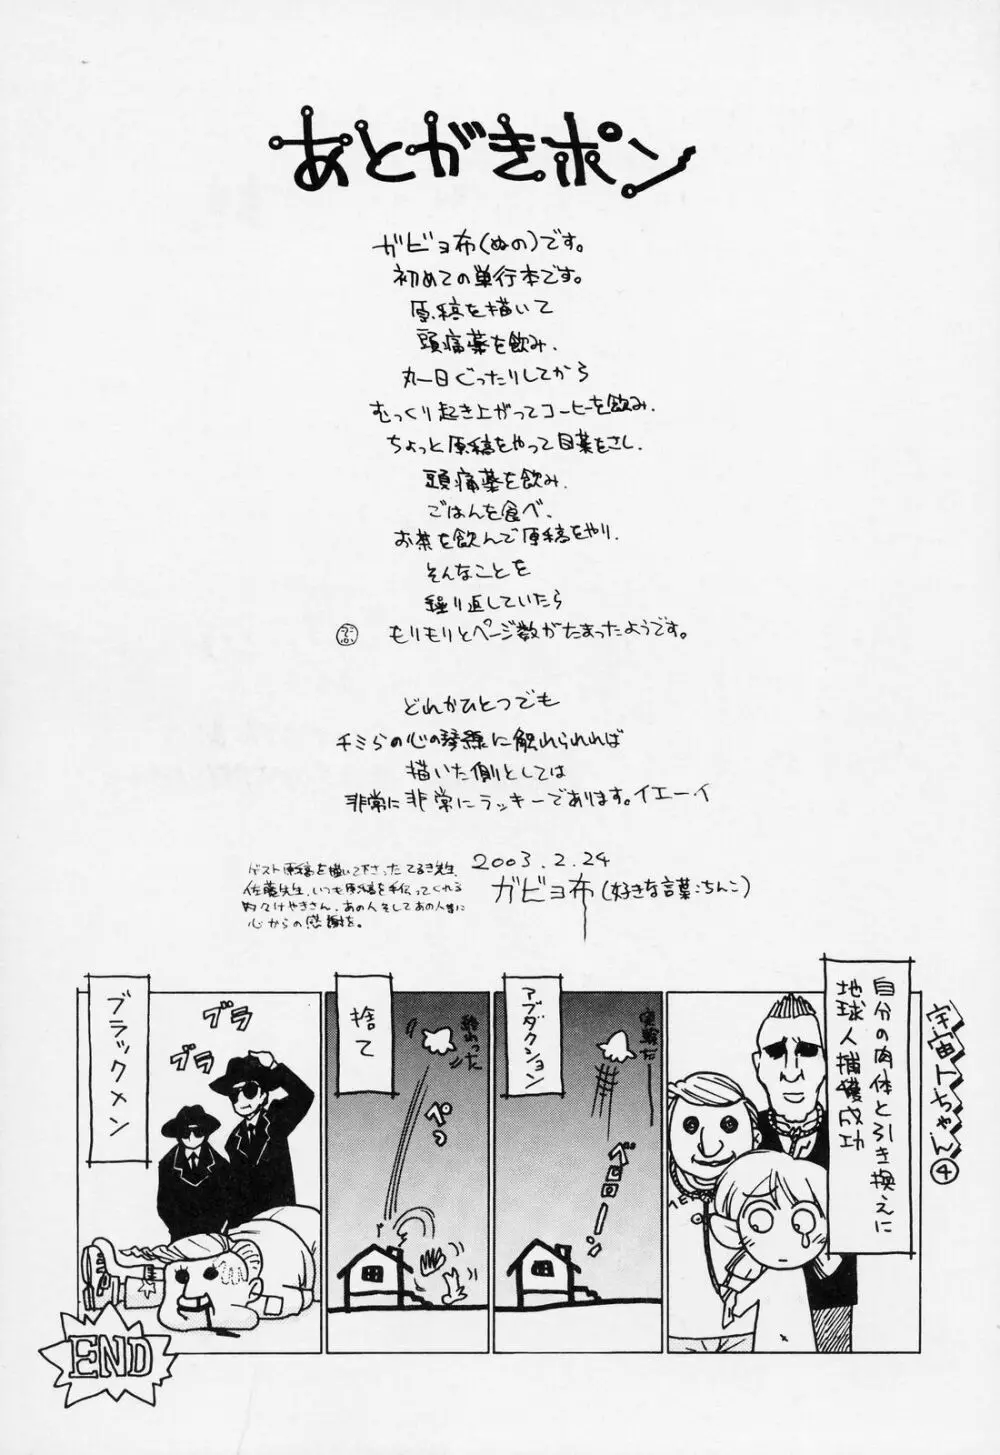 あとがきポン
ガビョ布(ぬの)です。
初めての単行本です。
原稿を描いて
頭痛薬を飲み、
丸一日ぐったりしてから
むっくり起き上がってコーヒーを飲み、
ちょっと原稿をやって目薬をさし、
頭痛薬を飲み、
ごはんを食べ、
お茶を飲んで原稿をやり、
そんなことを
繰り返していたら
もりもりとページ数がたまったようです。
どれかひとつでも
チミらの心の琴線に触れられれば
描いた側としては
非常に非常にラッキーであります。イエーイ
2003.2.24
ガビョ布(好きな言葉:ちんこ)
ゲスト原稿を描いて下さったてるき先生、
佐藤先生、いつも原稿を手伝ってくれる
けやきさん、あの人そしてあの人達に
心からの感謝を。
宇宙人ちゃん④
自分の肉体と引き換えに
地球人捕獲成功
アブダクション
実験だ
ペロローン
捨て
ぺっ
ブラックメン
ブラ
ブラ
END